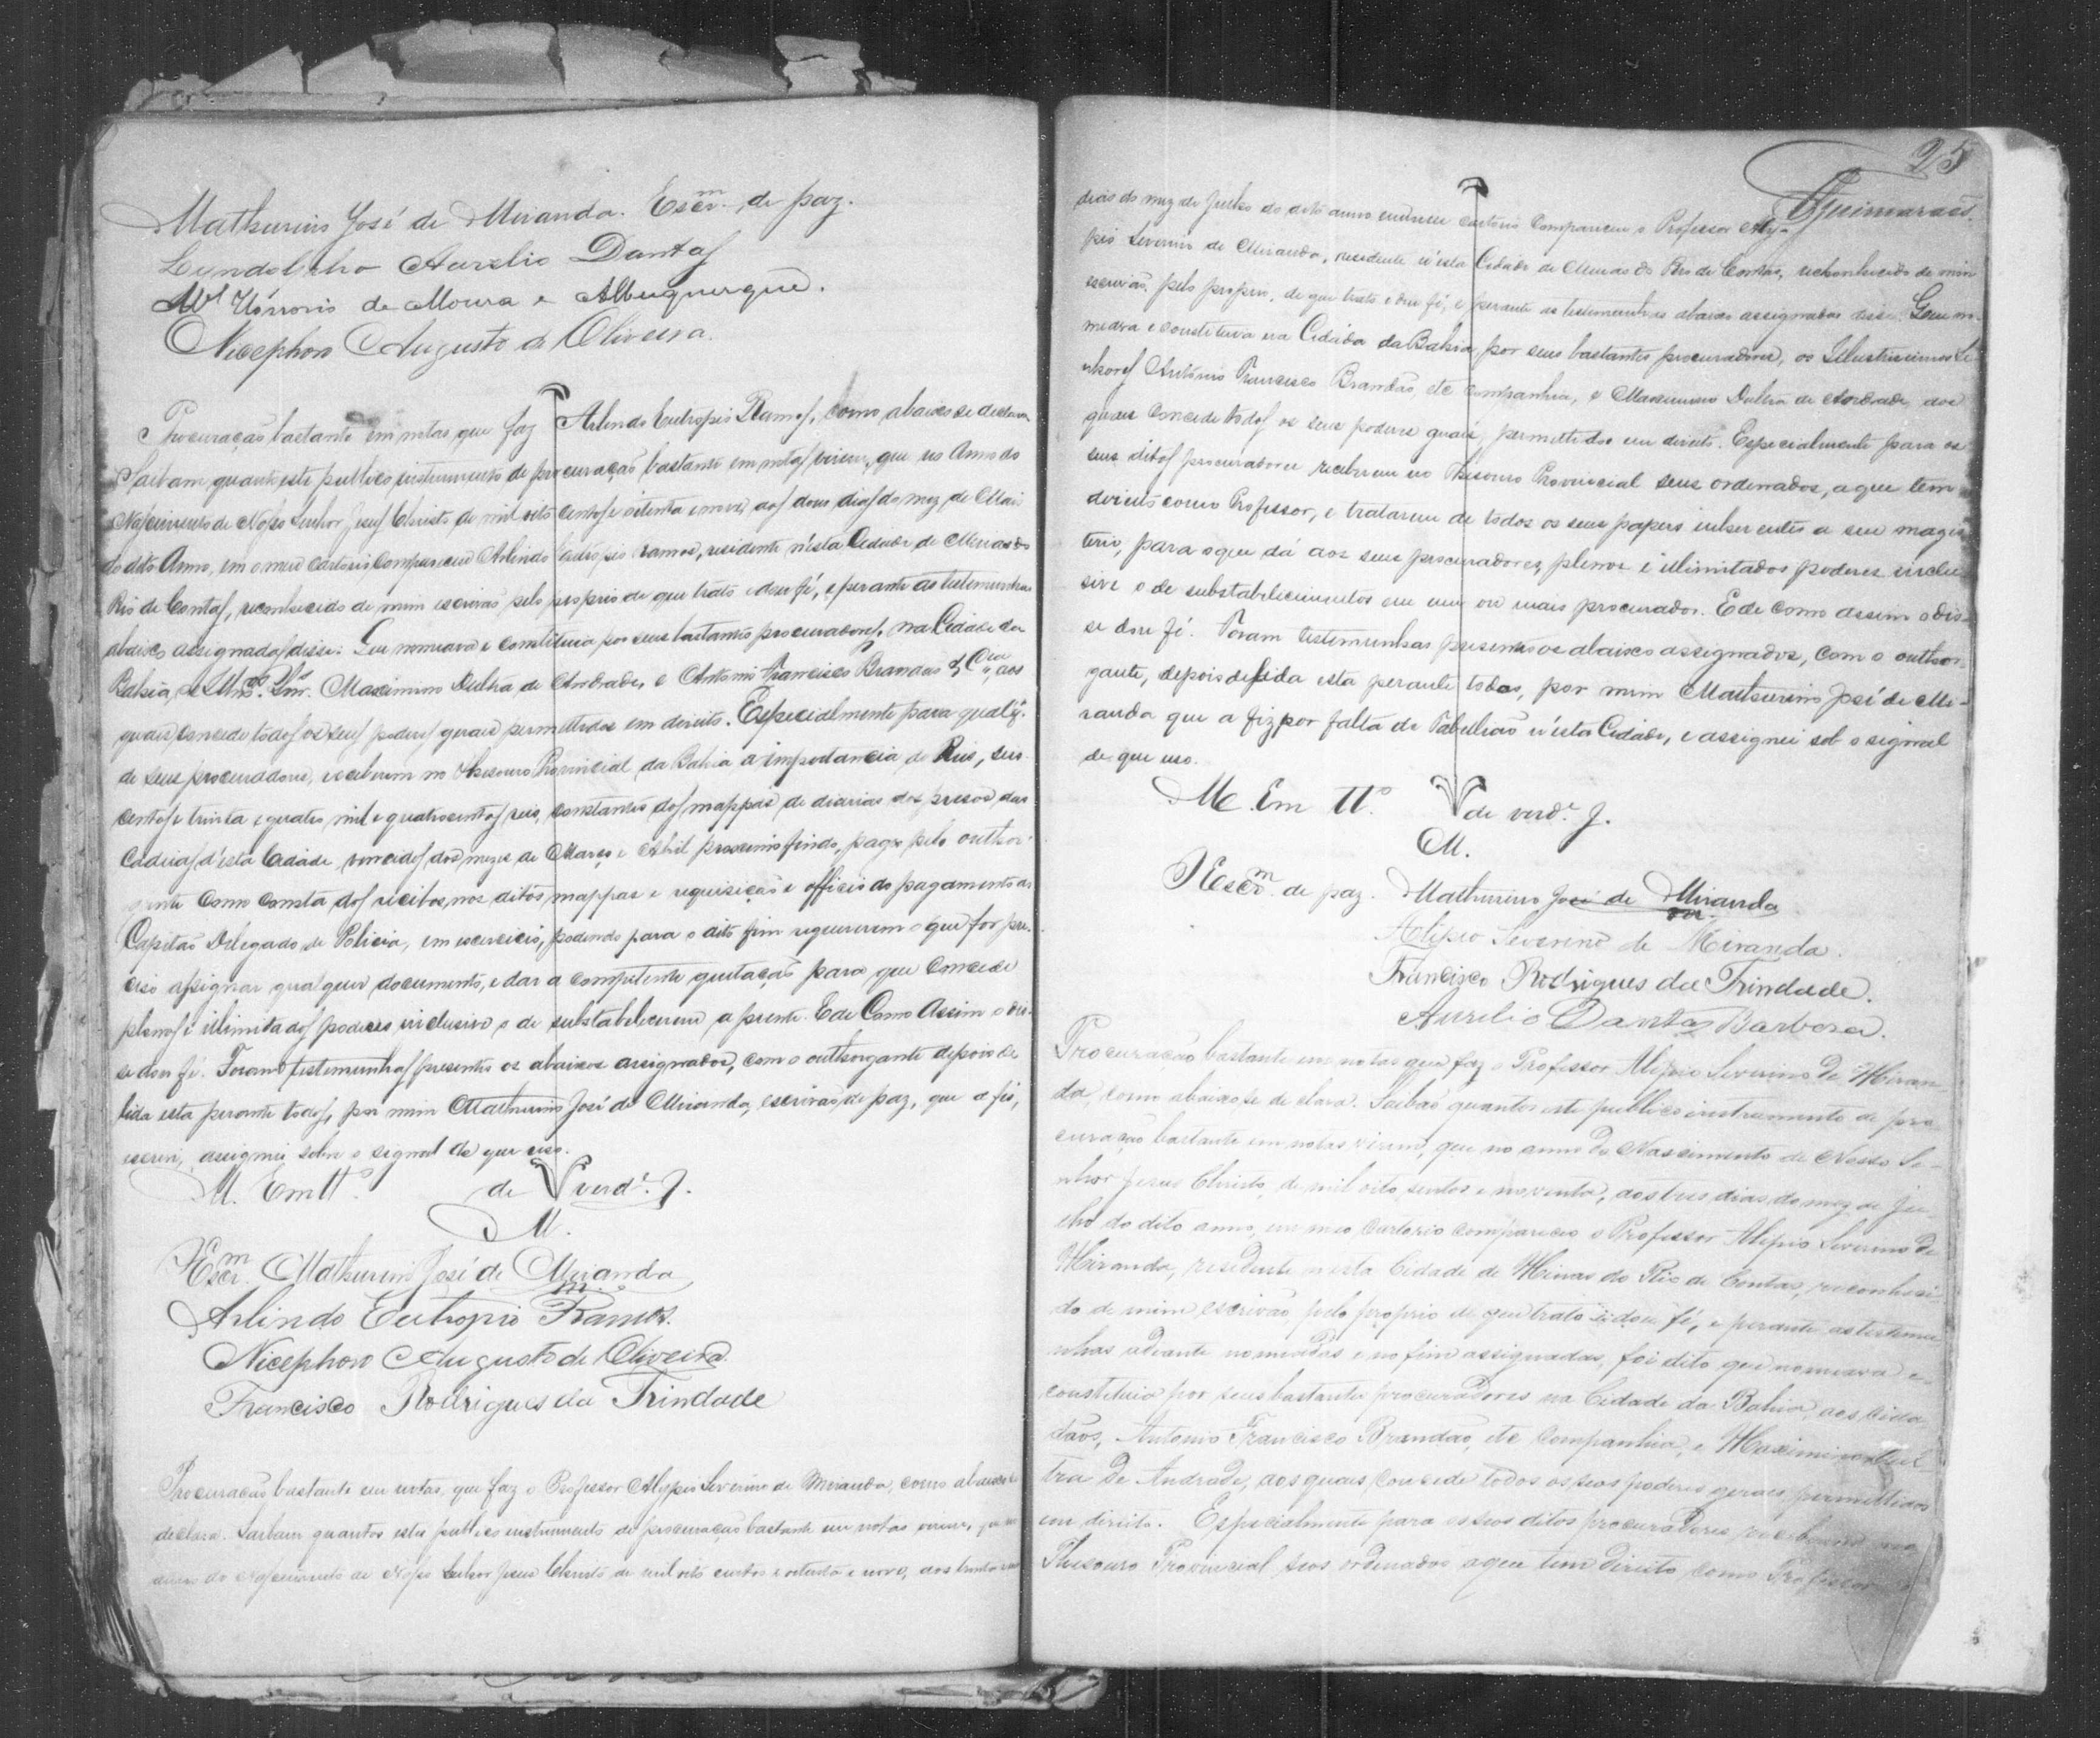 Mathurino José de Miranda. Escr.m de paz.
Lyndolpho Aurelio Dantas
M.el Honorio de Moura e Albuquerque.
Nicephoro Augusto de Oliveira.
Procuração bastante em notas que faz Arlindo Eutropio Ramos, como abaixo se declara
Saibam quantos este publico instrumento de procuração bastante em notas virem, que no Anno do
Nascimento de Nosso Senhor Jesus Christo de mil oito centos e oitenta e nove, aos dous dias do mez de Maio
do dito Anno, em o meu cartorio compareceu Arlindo Eutropio Ramos, residente n'esta Cidade de Minas do
Rio de Contas, reconhecido de mim escrivão pelo proprio de que trato e dou fé, e perante as testemunhas
abaixo assignadas disse: Que nomeava e constituia por seus bastantes procuradores, na Cidade da
Bahia, os Illmos. Snrs. Maximino Dultra de Andrade, e Antonio Francisco Brandão & Cia, aos
quaes concede todos os seus poderes geraes permettidos em direito. Especialmente para qualqr.
de seus procuradores, receberem no Thesouro Provincial da Bahia a importancia de Reis, seis
centos e trinta e quatro mil e quatrocentos reis, constantes dos mappas de diarias dos presos das
Cadeias d'esta Cidade, vencidos dos mezes de Março e Abril proximo findo, pagos pelo outhor
gante como consta dos recibos, nos ditos mappas e requisição e officio do pagamento do
Capitão Delegado de Policia, em exercicio, podendo para o dito fim requererem o que for pre-
ciso assignar qualquer documento, e dar a competente quitação para que concede
plenos e illimitados poderes inclusive o de substabelecerem a presente. E de Como Assim o dis-
se dou fé. Foram testemunhas presentes os abaixos assignados, com o outhorgante depois de
lida esta perante todos, por mim Mathurino José de Miranda, escrivão de paz, que a fis,
escrevi, assignei sobre o signal de que uso.
M. Em tt.o de verd.e J.
M.
Escr.m Mathurino José de Miranda
Arlindo Eutropio Ramos.
Nicephoro Augusto de Oliveira.
Francisco Rodrigues da Trindade
Procuração bastante em notas, que faz o Professor Alypio Severino de Miranda, como abaixo se
declara. Saibam quantos este publico instrumento de procuração bastante em notas virem, que no
anno do Nascimento de Nosso Senhor Jesus Christo de mil oito centos e oitenta e nove, aos
25
Guimarães.
dias do mez de Julho do dito anno em meu cartorio compareceu o Professor Aly-
pio Severino de Miranda, residente n'esta Cidade de Minas do Rio de Contas, rechonhecido de mim
escrivão, pelo proprio, de que trato e dou fé, e perante as testemunhas abaixo assignadas disse: Que no-
meava e constituia na Cidade da Bahia, por seus bastantes procuradores, os Illustrissimos Se-
nhores Antonio Francisco Brandão, etc Companhia, e Maximino Dultra de Andrade, aos
quaes concede todos os seus poderes geraes, permettidos em direito. Especialmente para os
seus ditos procuradores receberem no Thesouro Provincial seus ordenados, a que tem
direito como Professor, e tratarem de todos os seus papeis inherentes a seu magis
terio, para o que dá aos seus procuradores, plenos e illimitados poderes inclu
sive o de substabelecimentos em um ou mais procurador. E de como assim o dis-
se dou fé. Foram testemunhas presentes os abaixo assignados, com o outhor-
gante, depois de lida esta perante todos, por mim Mathurino José de Mi-
randa que a fiz por falta de Tabellião n'esta Cidade, e assignei sob o signal
de que uso.
M. Em tt.o de verd.e J.
M.
Escr.m de paz. Mathurino José de Miranda
Alipio Severino de Miranda.
Francisco Rodrigues da Trindade.
Aurelio Dantas Barbosa.
Procuração bastante em notas que faz o Professor Alipio Severino de Miran-
da, como abaixo se de clara. Saibão quantos este publico instrumento de pro
curação bastante em notas virem, que no anno do Nascimento de Nosso Se-
nhor Jesus Christo, de mil oito sentos e noventa, aos tres dias do mez de Ju-
lho do dito anno, em meo Cartorio compareceo o Professor Alipio Severino de
Miranda, residente nesta Cidade de Minas do Rio de Contas, reconheci-
do de mim escrivão pelo proprio de que trato e dou fé, e perante as testemu
nhas adeante nomeadas e no fim assignadas, foi dito que nomeava e
constituia por seus bastante procuradores na Cidade da Bahia, aos cida
dãos, Antonio Francisco Brandão, etc Companhia, e Maximino Dul-
tra de Andrade, aos quaes concede todos os seos poderes geraes permettidos
em direito. Especialmente para os seos ditos procuradores receberem no
Thesouro Provincial seos ordenados a que tem direito como Professor